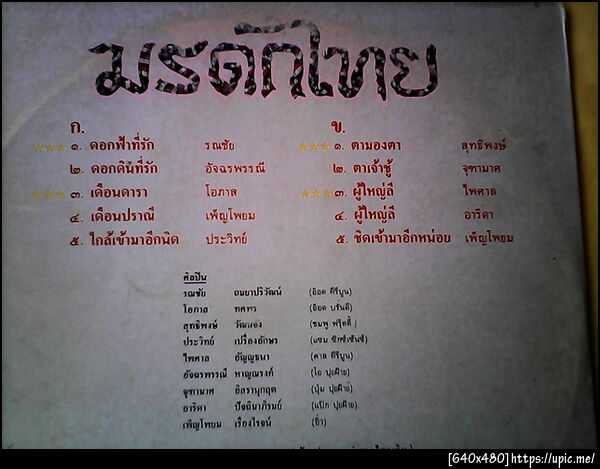 มรดกไทย
ก.
★★★ ๑. ดอกฟ้าที่รัก รณชัย
๒. ดอกดินที่รัก อัจฉรพรรณี
★★★ ๓. เดือนดารา โอภาส
๔. เดือนปราณี เพ็ญโพยม
๕. ใกล้เข้ามาอีกนิด ประวิทย์
ข.
★★★ ๑. ตามองตา สุทธิพงษ์
๒. ตาเจ้าชู้ จุฑามาศ
★★★ ๓. ผู้ใหญ่ลี ไพศาล
๔. ผู้ใหญ่ลี อาริดา
๕. ชิดเข้ามาอีกหน่อย เพ็ญโพยม
ศิลปิน
รณชัย ถมยาปริวัฒน์ (อ๊อด คีรีบูน)
โอภาส ทศพร (อ๊อด บรั่นดี)
สุทธิพงษ์ วัฒนจัง (ชมพู ฟรุ๊ตตี้)
ประวิทย์ เปรื่องอักษร (แซม ซิกซ์เซ้นซ์)
ไพศาล อัญญธนา (ศาล คีรีบูน)
อัจฉรพรรณี หาญณรงค์ (โอ ปุยฝ้าย)
จุฑามาศ อิสรานุกฤต (ปุ้ม ปุยฝ้าย)
อาริดา ปัจฉิมาภิรมย์ (แป๊ก ปุยฝ้าย)
เพ็ญโพยม เรืองโรจน์ (ยิ๋ว)
[640x480]https://upic.me/